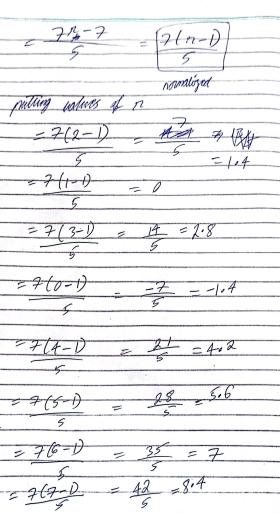 = 7n-7/5 = 7(n-1)/5
normalized
putting values of n
= 7(2-1)/5 = 7/5 = 1.4
= 7(1-1)/5 = 0
= 7(3-1)/5 = 14/5 = 2.8
= 7(0-1)/5 = -7/5 = -1.4
= 7(4-1)/5 = 21/5 = 4.2
= 7(5-1)/5 = 28/5 = 5.6
= 7(6-1)/5 = 35/5 = 7
= 7(7-1)/5 = 42/5 = 8.4